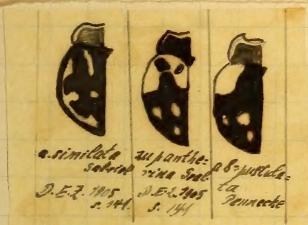 a. similata
Gabriel
D.E.Z. 1905
S. 141.
panthe-
rina Gral.
D.E.Z. 1905
S. 141
a. 8-pustula-
ta
Penneche